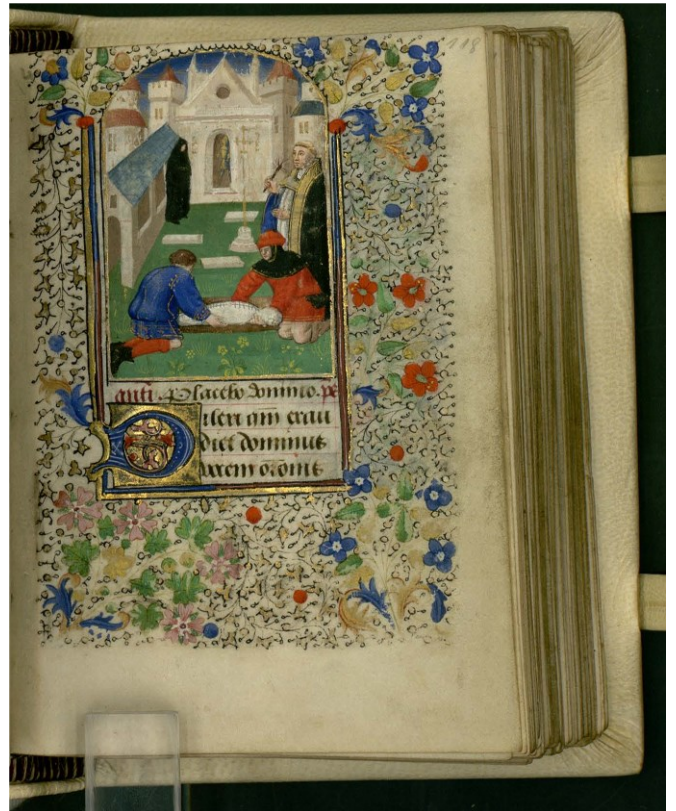 118
anti. Placebo domino. ps
Dilexi qm̄ exau
diet dominus
vocem orōnis